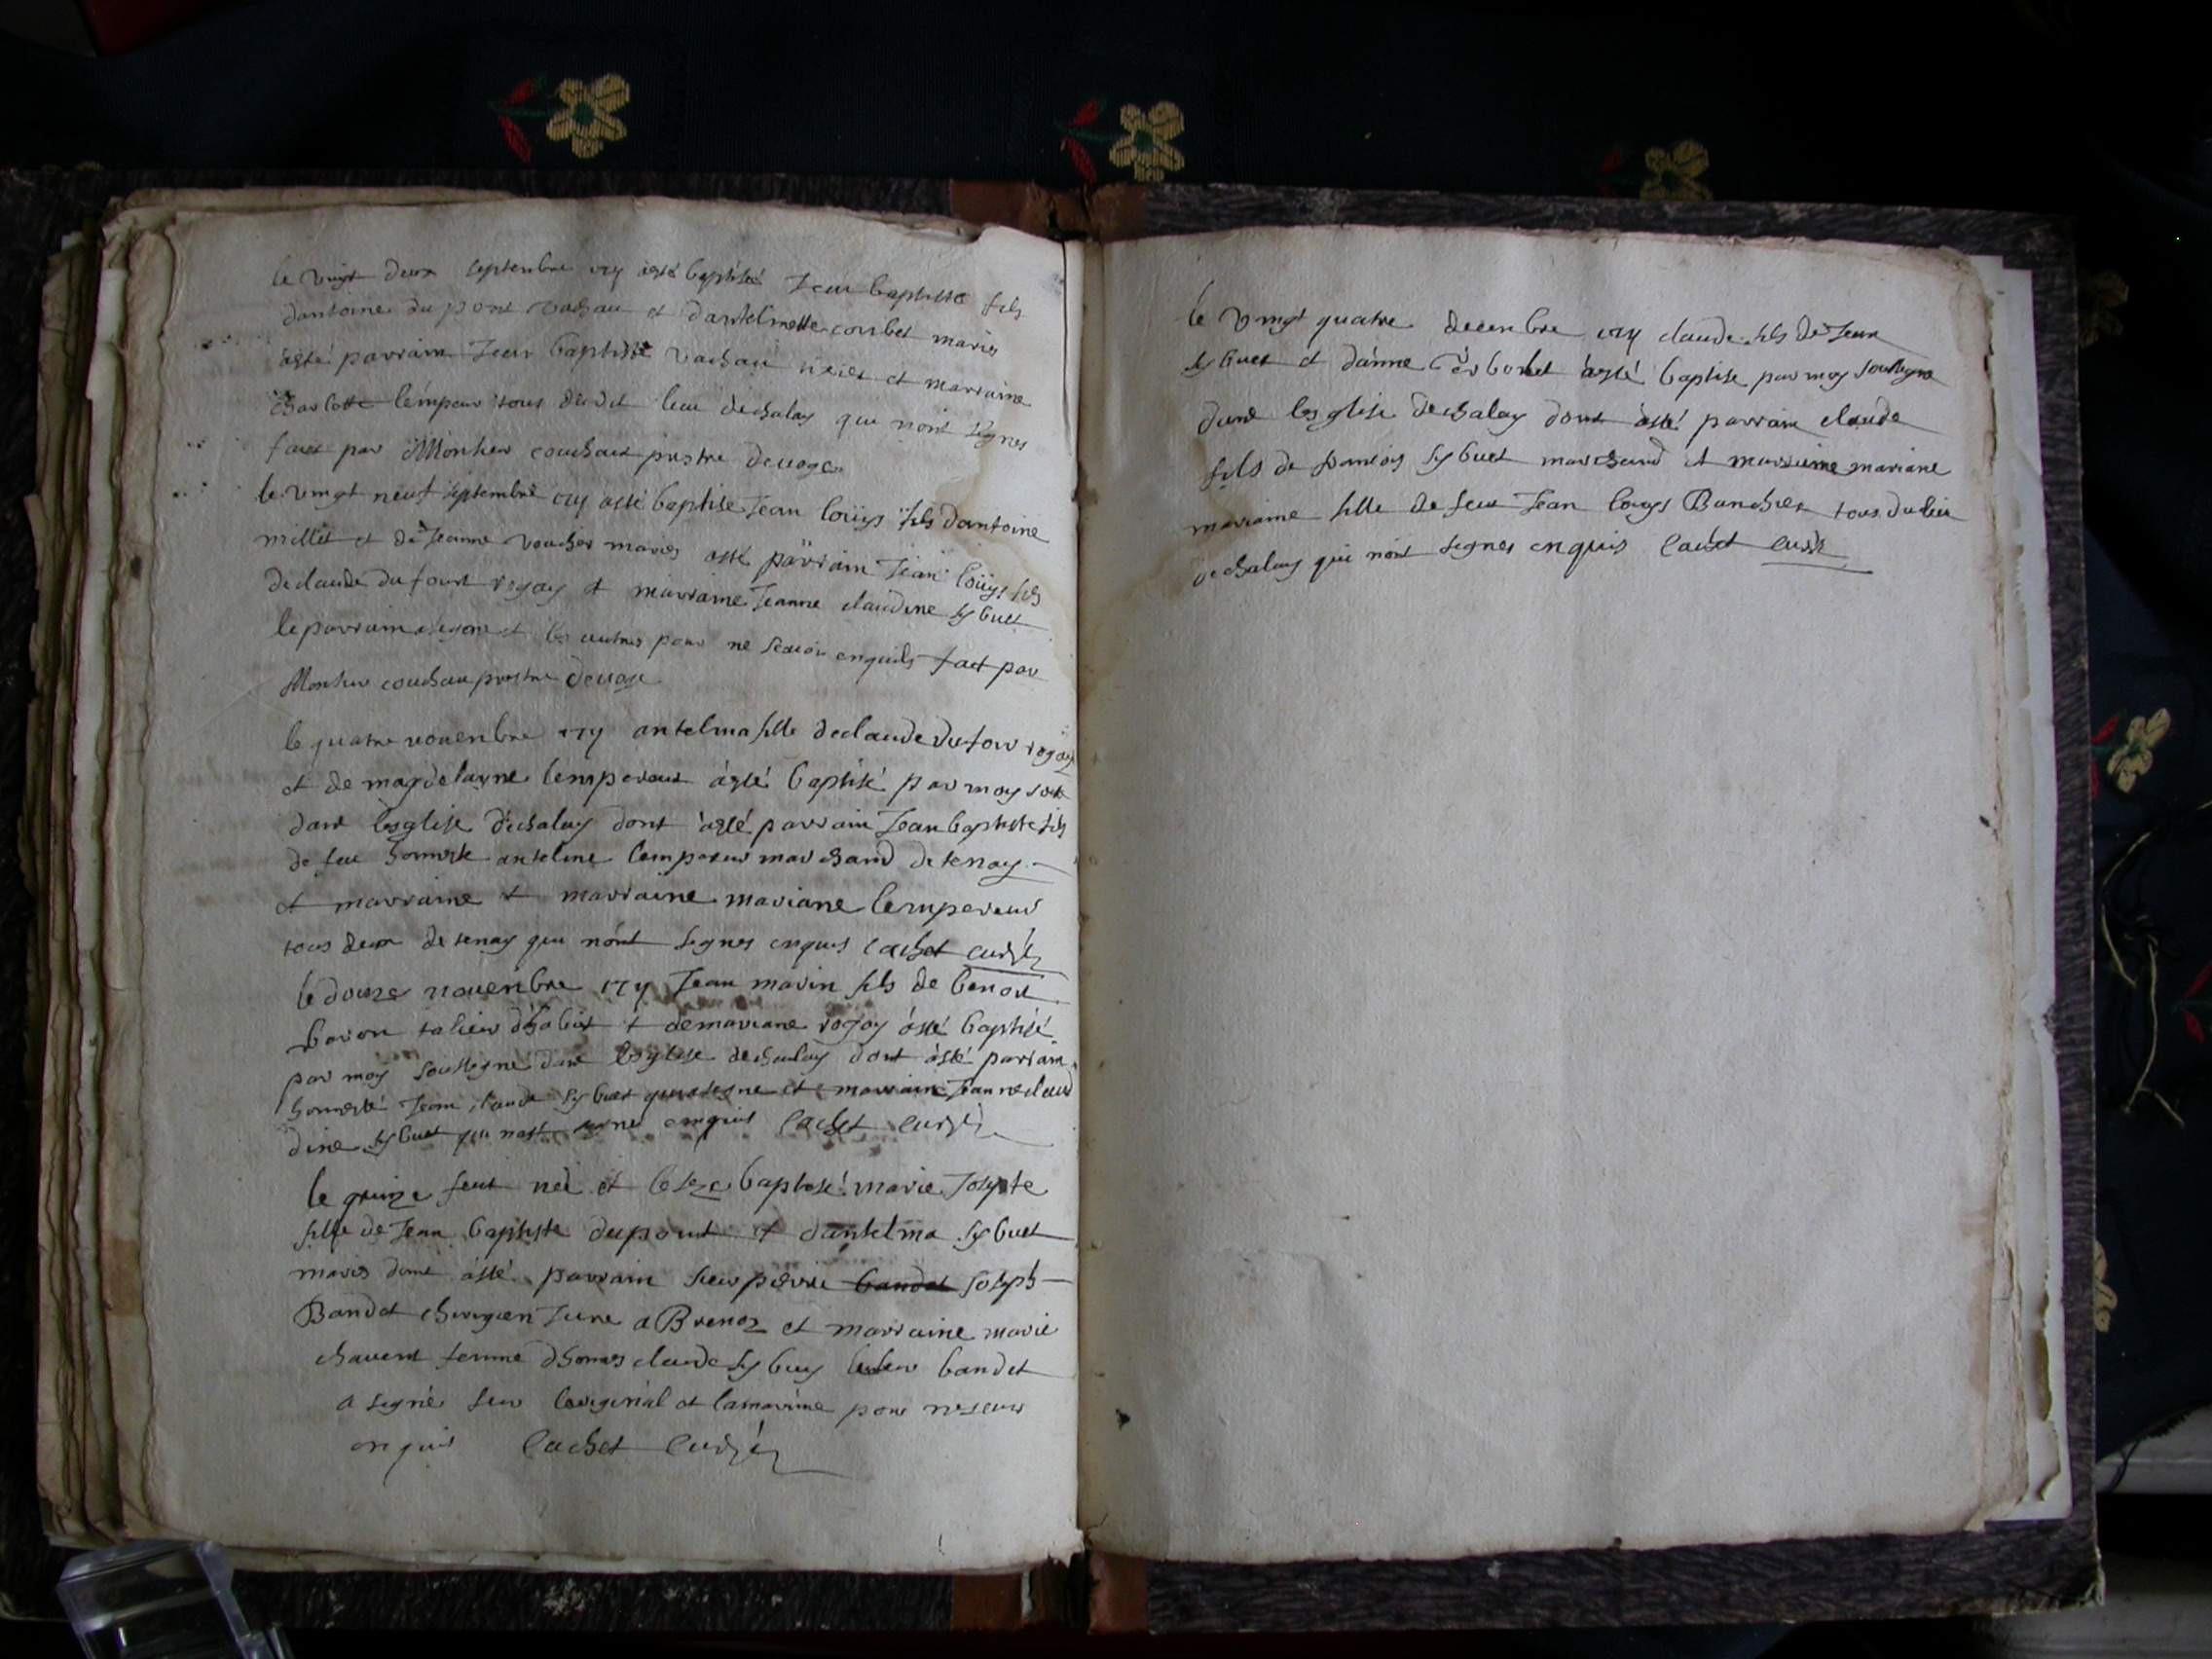 le vingt deux septembre 1711 asté baptisé Jean baptiste fils
dantoine du pont vachau et dantelmette corbet maries
asté parrain Jean baptiste vachau et marraine
charlotte lempereur tous dudit lieu dechalay qui nont signes
fait par Monsieur couchaut prestre
le vingt neuf septembre 1711 asté baptise Jean loüys fils dantoine
millet et de Jeanne maries asté parrain Jean loüys fils
de claude dufourt rogay et marraine Jeanne claudine sybuet
le parrain a signé et les autres pour ne scavoir enquis fait par
Monsieur couchau prestre
le quatre novenbre 1711 antelma fille declaude dufour rogay
et de magdelayne lempereur asté baptisé par moy sous
dans lesglise dechalay dont asté parrain Jean baptiste fils
de feu honneste antelme lempereur marchand detenay
et marraine et marraine mariane lempereur
tous deux detenay qui nont signes enquis cachet curé
le douze novenbre 1711 Jean marin fils de benoit
baron talieur dhabit et demariane rogay asté baptisé
par moy soussigné dans lesglise dechalay dont asté parrain
honneste Jean claude sybuet qui a signe et marraine Jeanne claud
dine sybuet qui nast signe enquis cachet curé
le quinze feut née et leseze baptisé marie Josepte
fille de Jean baptiste dupont et dantelma sybuet
maries dont asté parrain sieur pierre bandet Joseph
Bandet chirurgien Jure a Brenoz et marraine marie
chavent femme dhonnes claude sybuet lesieur bandet
a signé sur loriginal et lamarrine pour ne scavoir
enquis cachet curé
le vingt quatre decenbre 1711 claude fils de Jean
sybuet et danne asté baptise par moy soussigne
dans lesglise dechalay dont asté parrain claude
fils de francois sybuet marchand et marraine mariane
mariane fille de feu Jean louys tous dulieu
dechalay qui nont signes enquis cachet curé